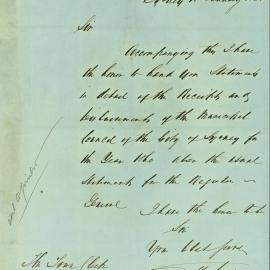 Sir
Accompanying this I have
the honor to hand you Statements
in detail of the Receipts and
Disbursements of the Municipal
Council of the City of Sydney for
the Year also the usual
Statements for the Register
General
I have the honor to be
Sir
Your Obed Serv
The Town Clerk